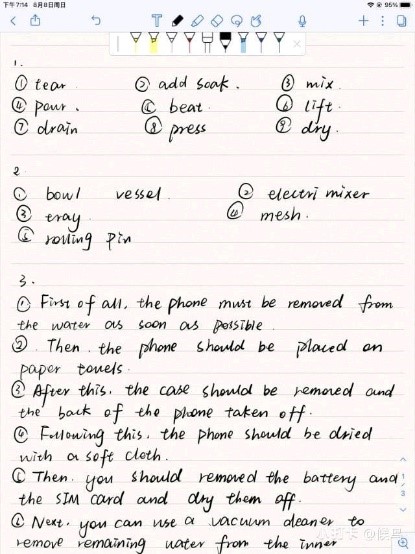 下午7:14 8月8日周日
95%
1.
① tear ② add soak. ③ mix
④ pour. ⑤ beat ⑥ lift.
⑦ drain ⑧ press ⑨ dry.
2
① bowl vessel. ② electri mixer
③ tray ④ mesh.
⑤ rolling pin
3.
① First of all, the phone must be removed from
the water as soon as possible
② Then, the phone should be placed on
paper towels.
③ After this, the case should be removed and
the back of the phone taken off.
④ Following this, the phone should be dried
with a soft cloth.
⑤ Then, you should removed the battery and
the SIM card and dry them off.
⑥ Next, you can use a vacuum cleaner to
remove remaining water from the inner